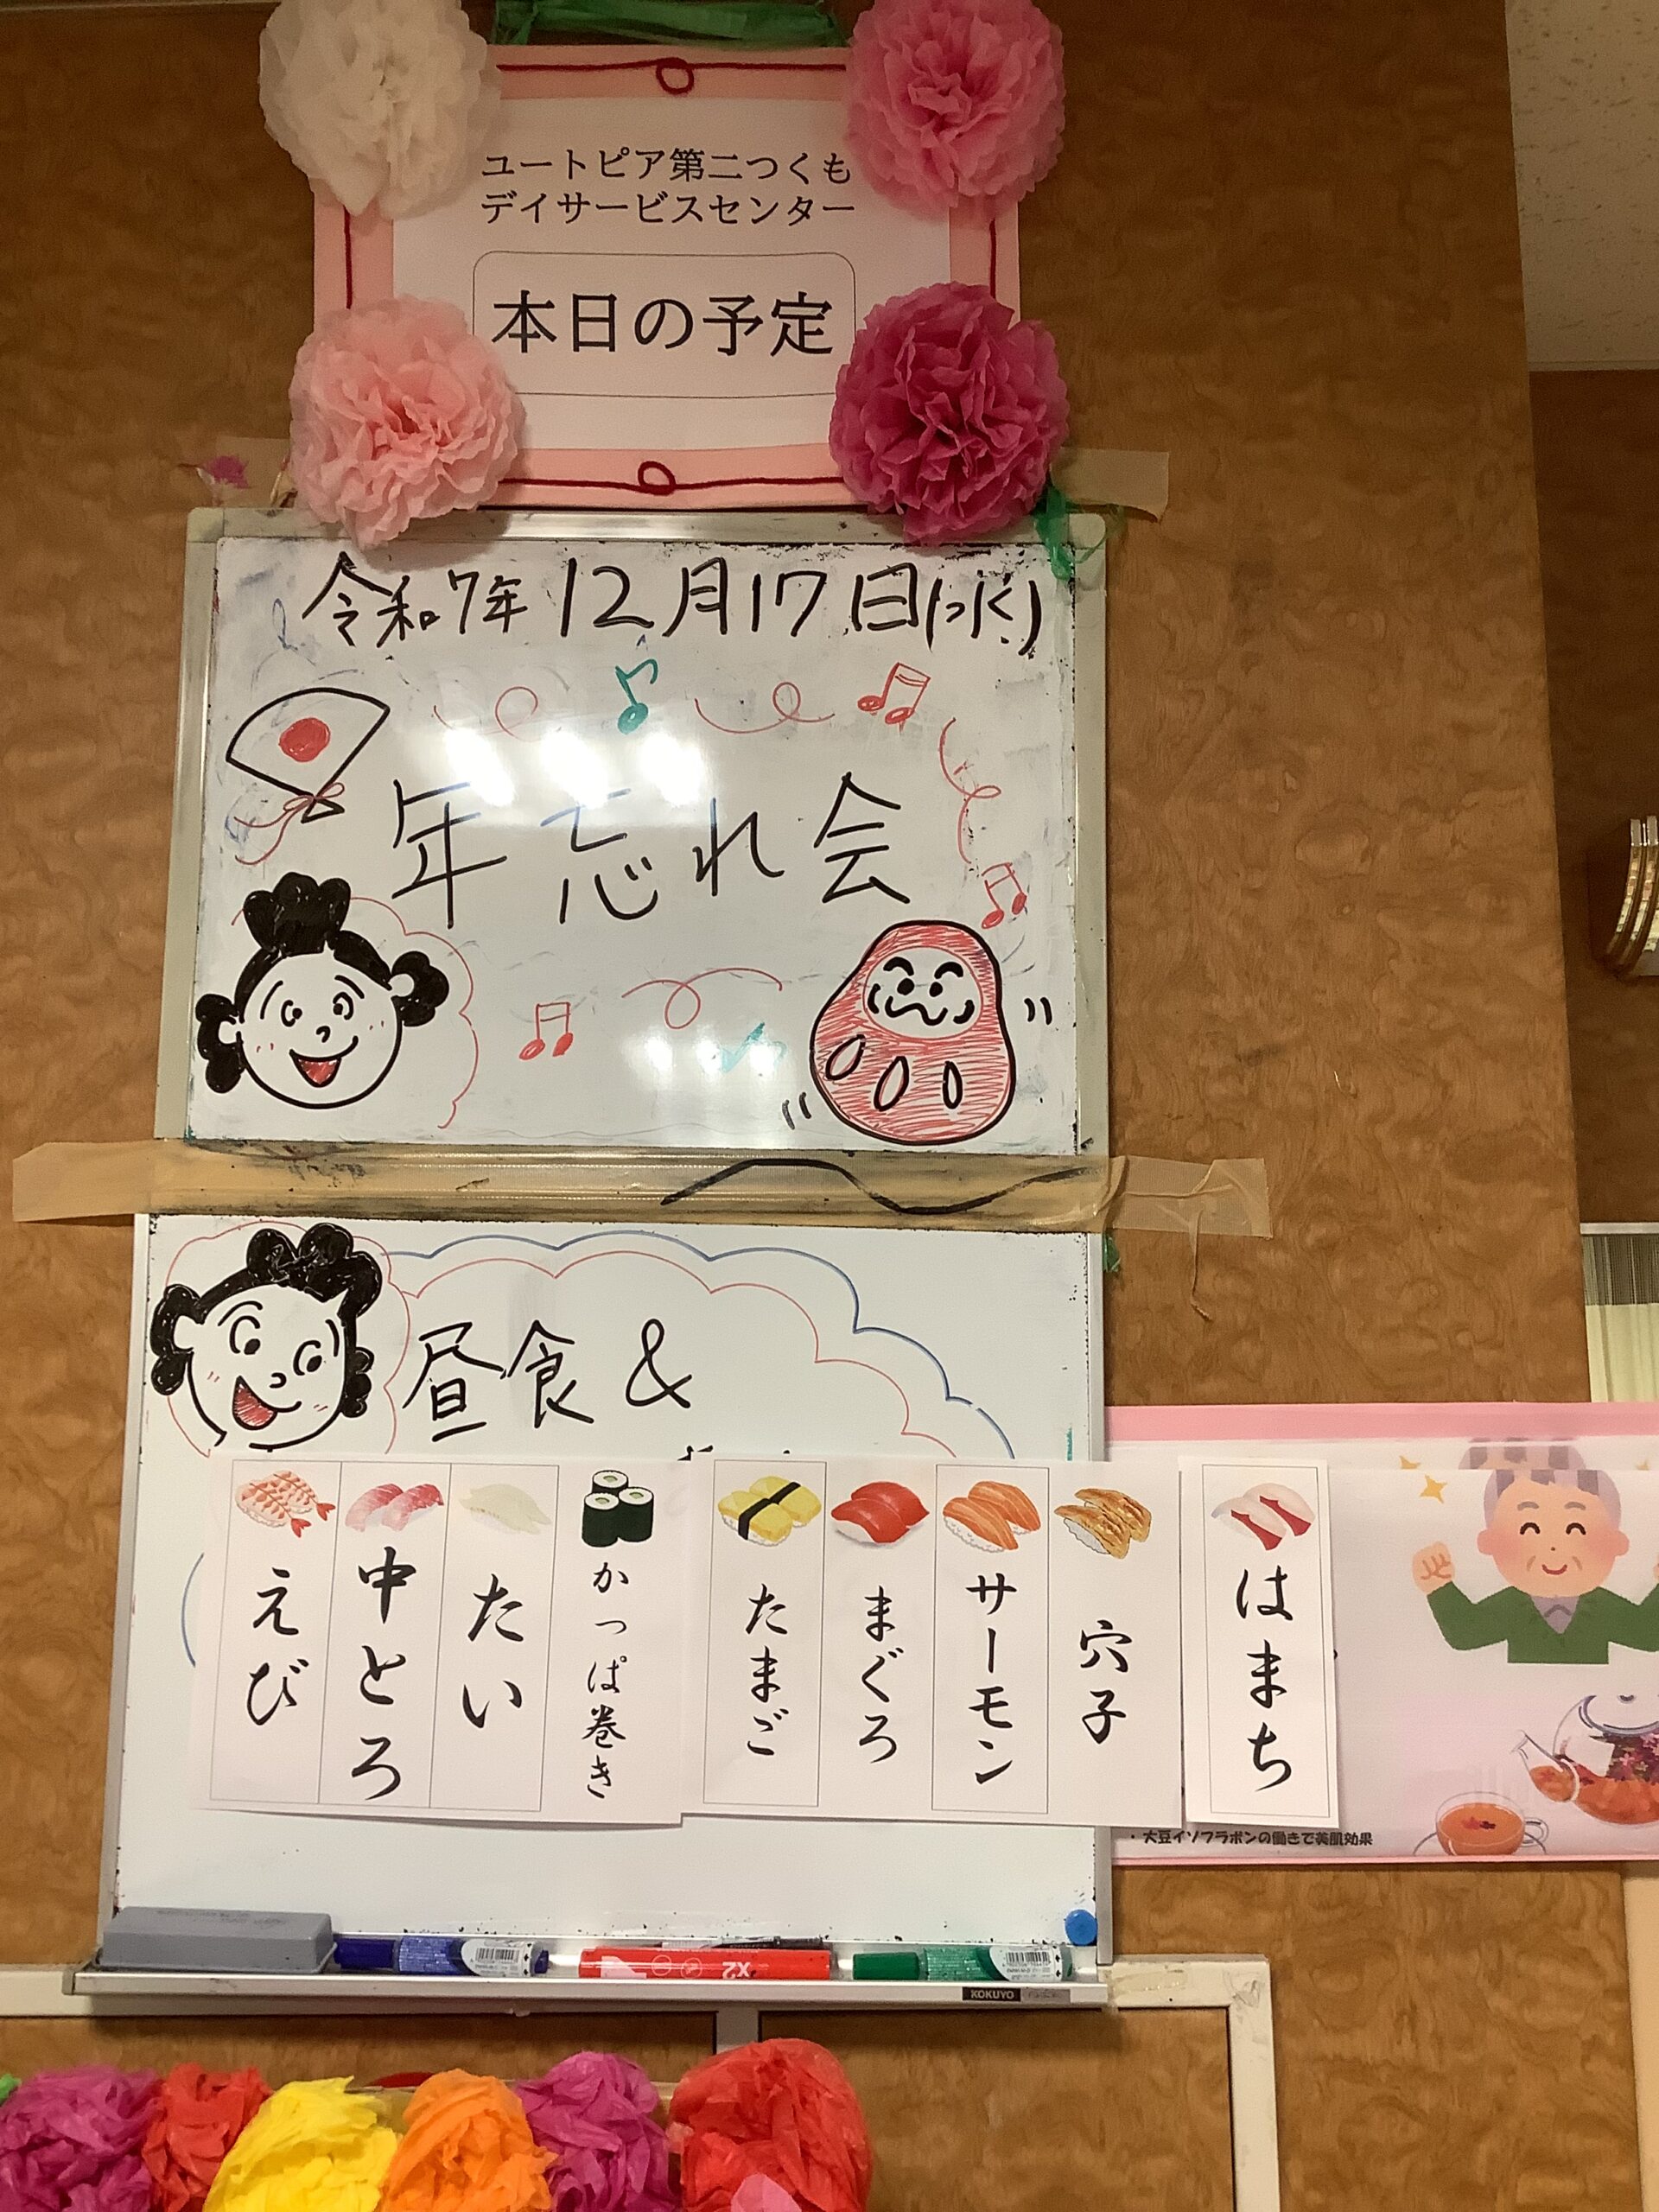 ユートピア第二つくも
デイサービスセンター
本日の予定
令和7年 12月17日(水)
年忘れ会
昼食 &
えび
中とろ
たい
かっぱ巻き
たまご
まぐろ
サーモン
穴子
はまち
・大豆イソフラボンの働きで美肌効果
X2
KOKUYO